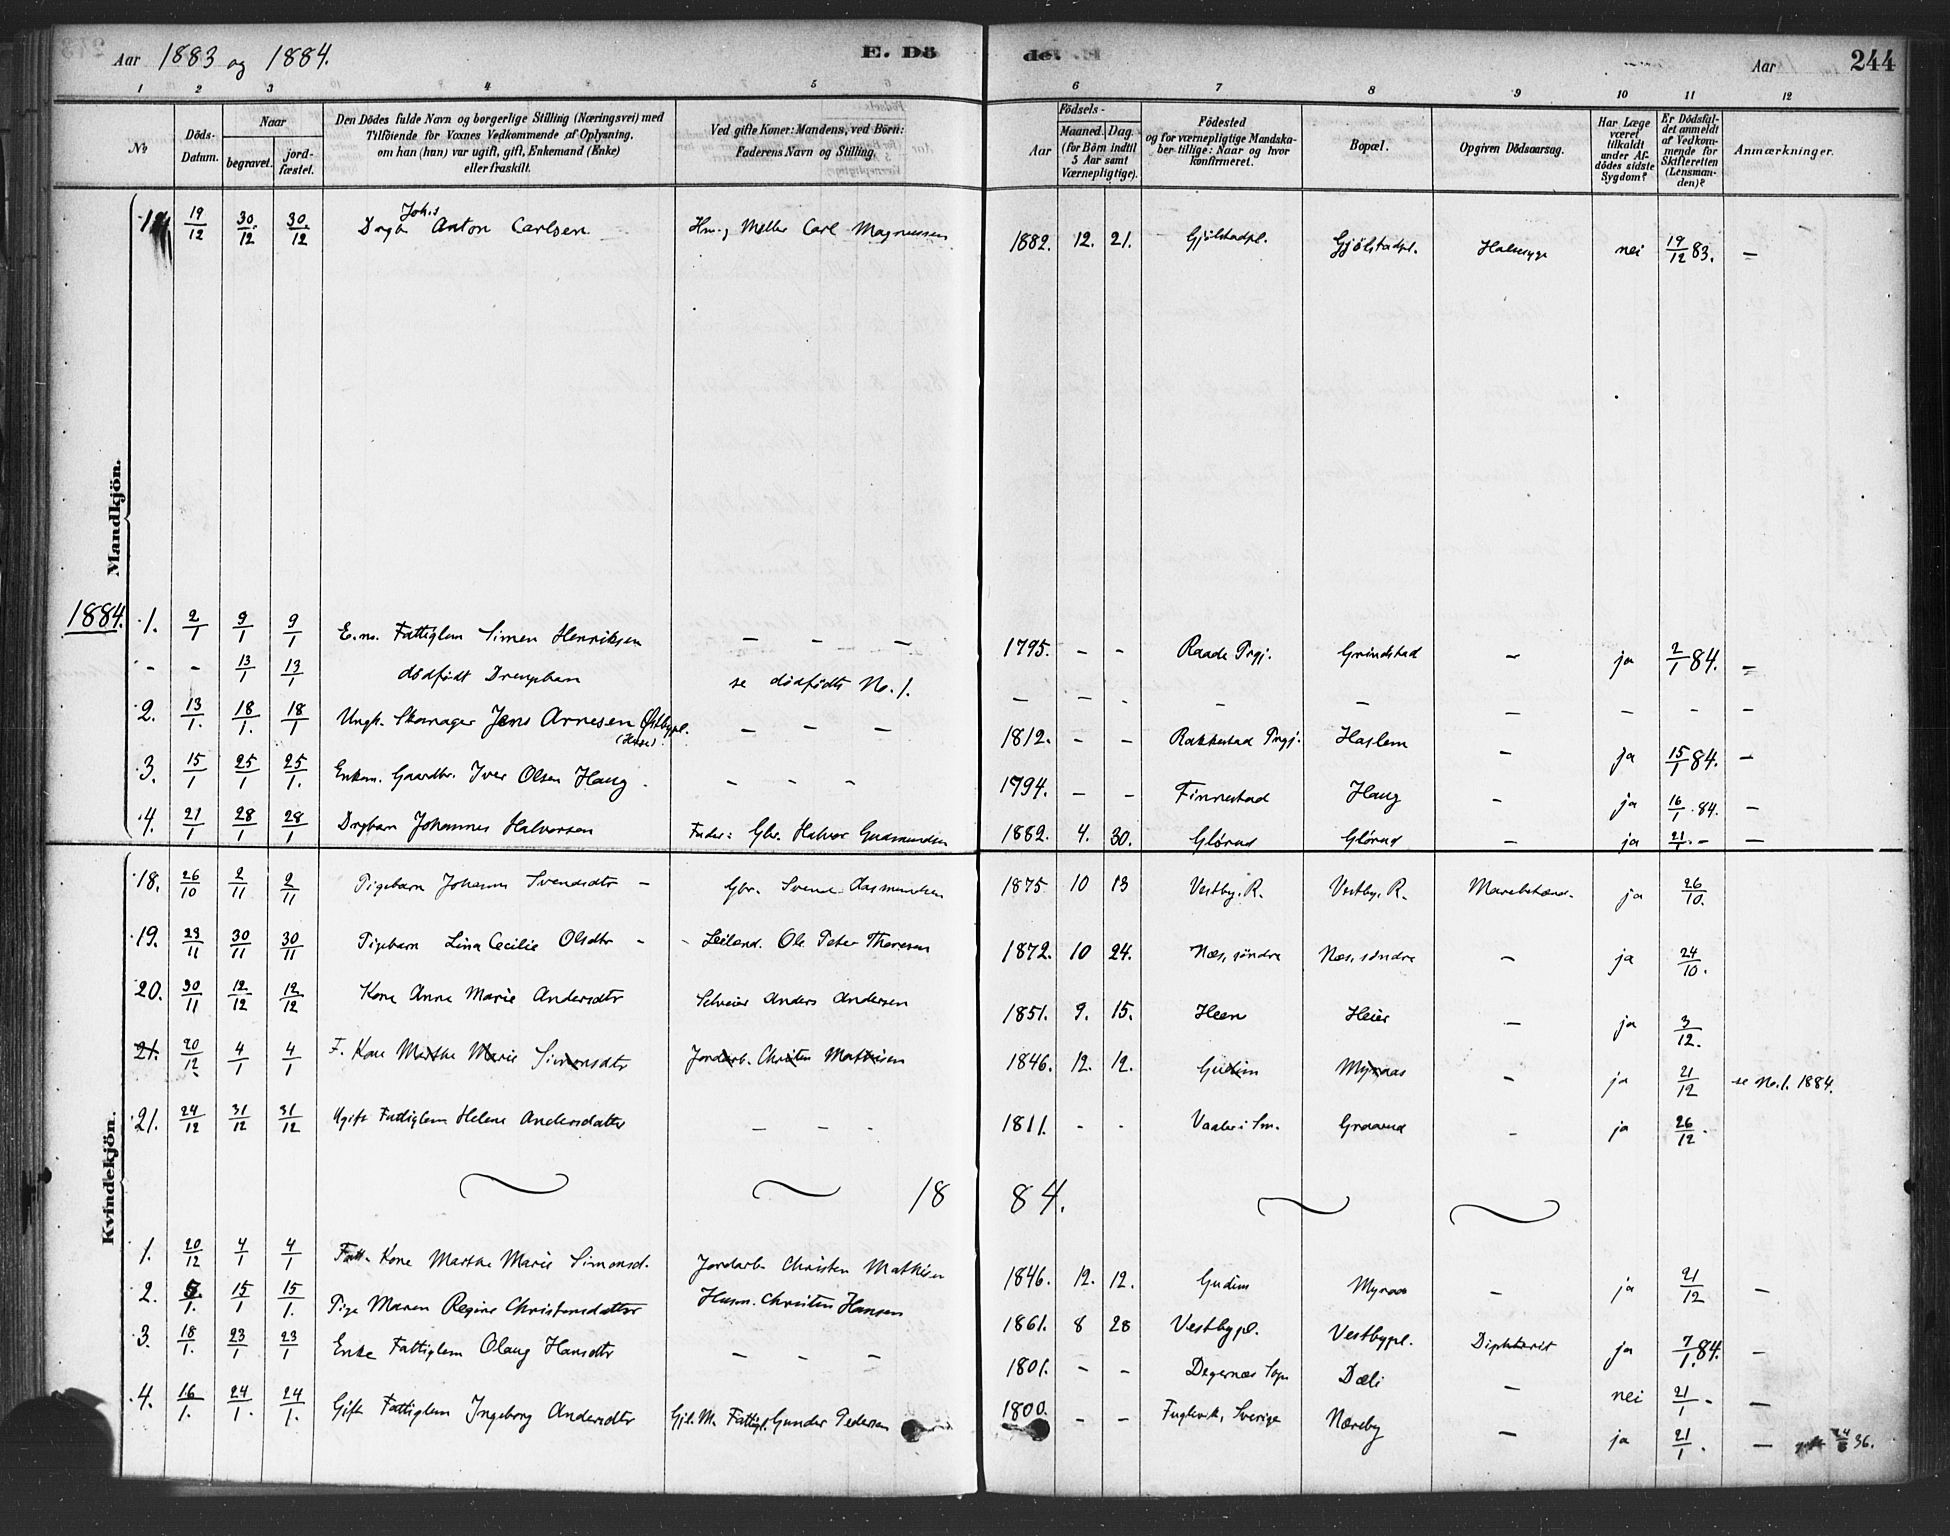 Aar 1883 og 1884. E. Dö de. Aar 244
1 2 3 4 5 6 7 8 9 10 11 12
No
Döds-Datum.
Naar
begravet.
jord-fæstet.
Den Dödes fulde Navn og borgerlige Stilling (Næringsvei) med
Tilföiende for Voxnes Vedkommende af Oplysning,
om han (hun) var ugift, gift, Enkemand (Enke)
eller fraskilt.
Ved gifte Koner: Mandens, ved Börn:
Faderens Navn og Stilling.
Födsels-
Aar
Maaned. Dag.
(for Börn indtil
5 Aar samt
Værnepligtige).
Födested
og for værnepligtige Mandska-
ber tillige: Naar og hvor
konfirmeret.
Bopæl.
Opgiven Dödsaarsag.
Har Læge
været
tilkaldt
under Af-
dödes sidste
Sygdom?
Er Dödsfal-
det anmeldt
af Vedkom-
mende for
Skifteretten
(Lensman-
den)?
Anmærkninger.
Mandkjön.
19/12 30/12 30/12 Drgb. Johs Anton Carlsen Hm. og Møller Carl Magnussen 1882. 12. 21. Gjølstadpl. Gjølstadpl. Halssyge nei 19/12 83. —
1884.
1. 2/1 9/1 9/1 E.m. Fattiglem Simen Henriksen — — — 1795. - - Raade Prgj. Grindstad — ja 2/1 84. —
- - 13/1 13/1 dødfødt Drengebarn se dødfødte No. 1. — — - — — — — - —
2. 13/1. 18/1 18/1 Ungk. Skomager Jens Arnesen Østbypl. — — — 1812. - - Rakkestad Prgj. Haslem — ja 15/1 84. —
3. 15/1 25/1 25/1. Enkem. Gaardbr. Iver Olsen Haug - - - 1794. - - Finnestad Haug - ja 16/1. 84. —
4. 21/1 28/1 28/1 Drgbarn Johannes Halvorsen Fader: Gbr. Halvor Gudmundsen 1882. 4. 30. Glørud Glørud — ja 21/1. - —
Kvindekjön.
18. 26/10 2/11 2/11 Pigebarn Johanne Svendsdtr — Gbr. Svend Aasmundsen 1875 10 13 Vestby. R. Vestby. R. ja 26/10.
19. 23/11 30/11 30/11 Pigebarn Lina Cecilie Olsdtr - Leilend. Ole Peter Thoresen 1872. 10 24. Næs, søndre Næs, søndre — ja 24/10.
20. 30/11 12/12 12/12 Kone Anne Marie Andersdtr Selveier Anders Andersen 1851. 9. 15. Heen Heier — ja 3/12.
21. 20/12 4/1 4/1 F. Kone Marthe Marie Simonsdtr Jordarb. Christen Mathisen 1846. 12. 12. Gudim Myraas - ja 21/12 se No. 1. 1884.
21. 24/12 31/12 31/12 Ugift Fattiglem Helene Andersdatter — - - 1811. - - Vaaler i Sm. Graarud - ja 26/12.
18 84.
1. 20/12 4/1 4/1 Fatt. Kone Marthe Marie Simonsd. Jordarb. Christen Mathisen 1846. 12. 12. Gudim Myraas - ja 21/12 —
2. 5/1. 15/1 15/1. Pige Maren Regine Christensdatter Husm. Christen Hansen 1861. 8 28 Vestbypl. Vestbypl. Diphterit ja 7/1. 84. —
3. 18/1. 23/1 23/1 Enke Fattiglem Olaug Hansdtr — — — 1801. - - Degernæs Sogn Dæli — nei 21/1 - —
4. 16/1. 24/1. 24/1. Gift Fattiglem Ingeborg Andersdtr Gift M. Fattigl. Gunder Pedersen 1800. - - Fuglevik, Sverige Næreby — ja 21/1. — 36.